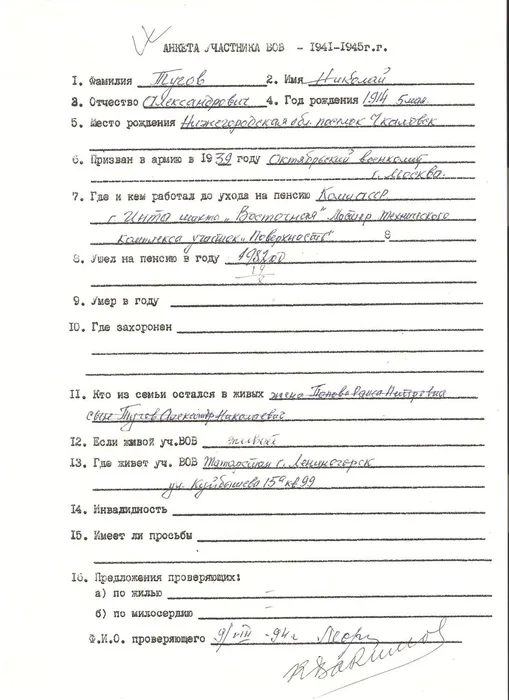 АНКЕТА УЧАСТНИКА ВОВ - 1941-1945г.г.
1. Фамилия Тугов 2. Имя Николай
3. Отчество Александрович 4. Год рождения 1914 5 мая.
5. Место рождения Нижегородская обл. поселок Чкаловск
6. Призван в армию в 1939 году Октябрьский военкомат
г. Москва.
7. Где и кем работал до ухода на пенсию Коми асср.
г. Инта шахта „Восточная" Мастер Технического
комплекса участок „Поверхность"
8. Ушел на пенсию в году 1982
9. Умер в году
10. Где захоронен
11. Кто из семьи остался в живых жена Попова Раиса
сын Тугов Александр Николаевич
12. Если живой уч.ВОВ живой
13. Где живет уч. ВОВ Татарстан г. Лениногорск
ул. Куйбышева 15а кв 99
14. Инвалидность
15. Имеет ли просьбы
16. Предложения проверяющих:
а) по жилью –
б) по милосердию –
Ф.И.О. проверяющего 9/VIII -94г.